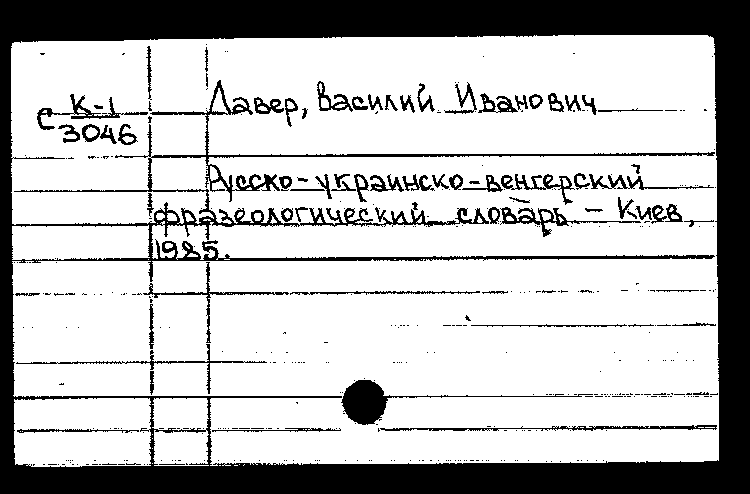 С К-1
3046
Лавер, Василий Иванович
Русско-украинско-венгерский
фразеологический словарь – Киев,
1985.